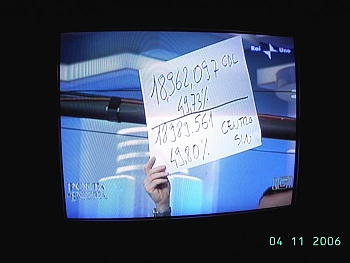 Rai Uno
18,962,097 CDL
49,73%
18989.561 CENTRO SIN
49,80%
PORTA
a PORTA
04 11 2006